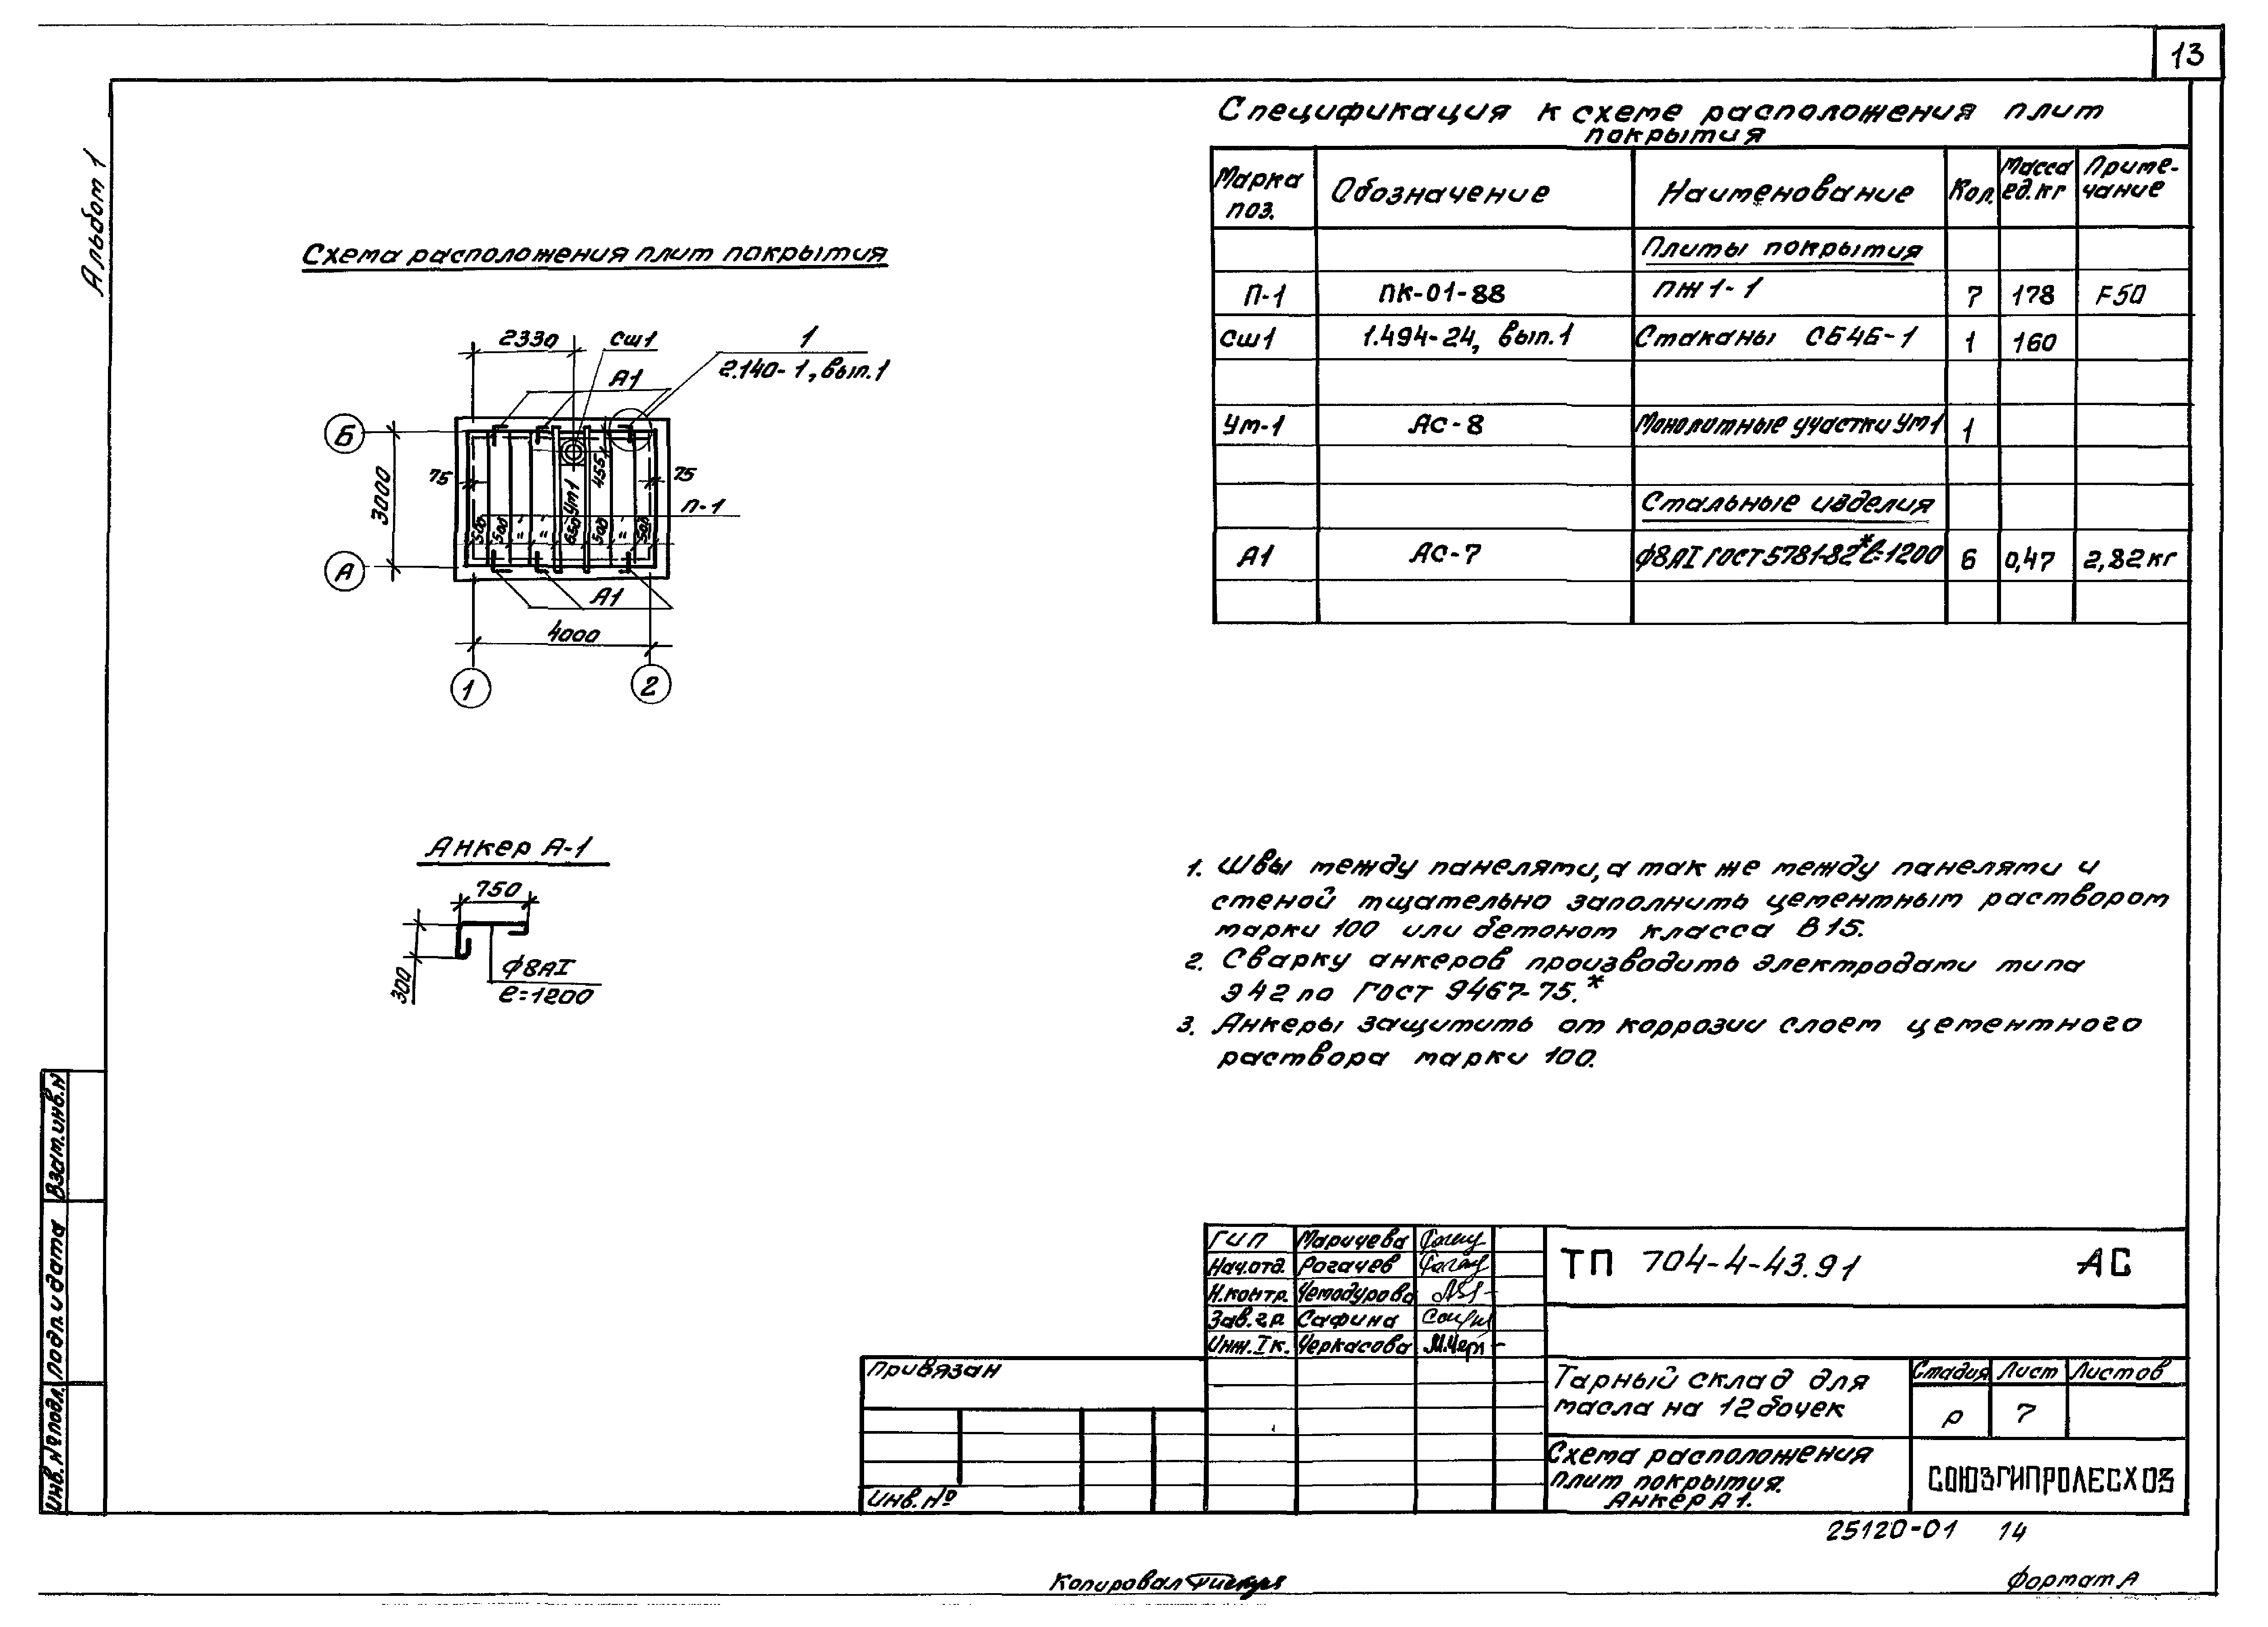 13
Альбом 1
Схема расположения плит покрытия
2330
Сш1
1
2.140-1, вып.1
А1
Б
3000
75
455
75
Ут1
П-1
500
500
"
"
650
500
"
500
А
А1
4000
1
2
Анкер А-1
750
300
ф8АI
ℓ=1200
Спецификация к схеме расположения плит
покрытия
Марка поз. Обозначение Наименование Кол. Масса ед.кг Примечание
Плиты покрытия
П-1 ПК-01-88 ПЖ1-1 7 178 F50
Сш1 1.494-24, вып.1 Стаканы СБ4Б-1 1 160
Ут-1 АС-8 Монолитные участки Ут1 1
Стальные изделия
А1 АС-7 ф8АI ГОСТ 5781-82* ℓ=1200 6 0,47 2,82кг
1. Швы между панелями, а так же между панелями и
стеной тщательно заполнить цементным раствором
марки 100 или бетоном класса В15.
2. Сварку анкеров производить электродами типа
Э42 по ГОСТ 9467-75.*
3. Анкеры защитить от коррозии слоем цементного
раствора марки 100.
Взам.инв.н
Подп. и дата
Инв.№подл.
ГИП Маричева
Нач.отд. Рогачев
Н.контр. Чемодурова
Зав.гр. Сафина
Инж.Iк. Черкасова
Привязан
Инв.№
ТП 704-4-43.91 АС
Тарный склад для
масла на 12 бочек
Стадия Лист Листов
Р 7
Схема расположения
плит покрытия.
Анкер А1.
СОЮЗГИПРОЛЕСХОЗ
25120-01 14
Копировал
Формат А